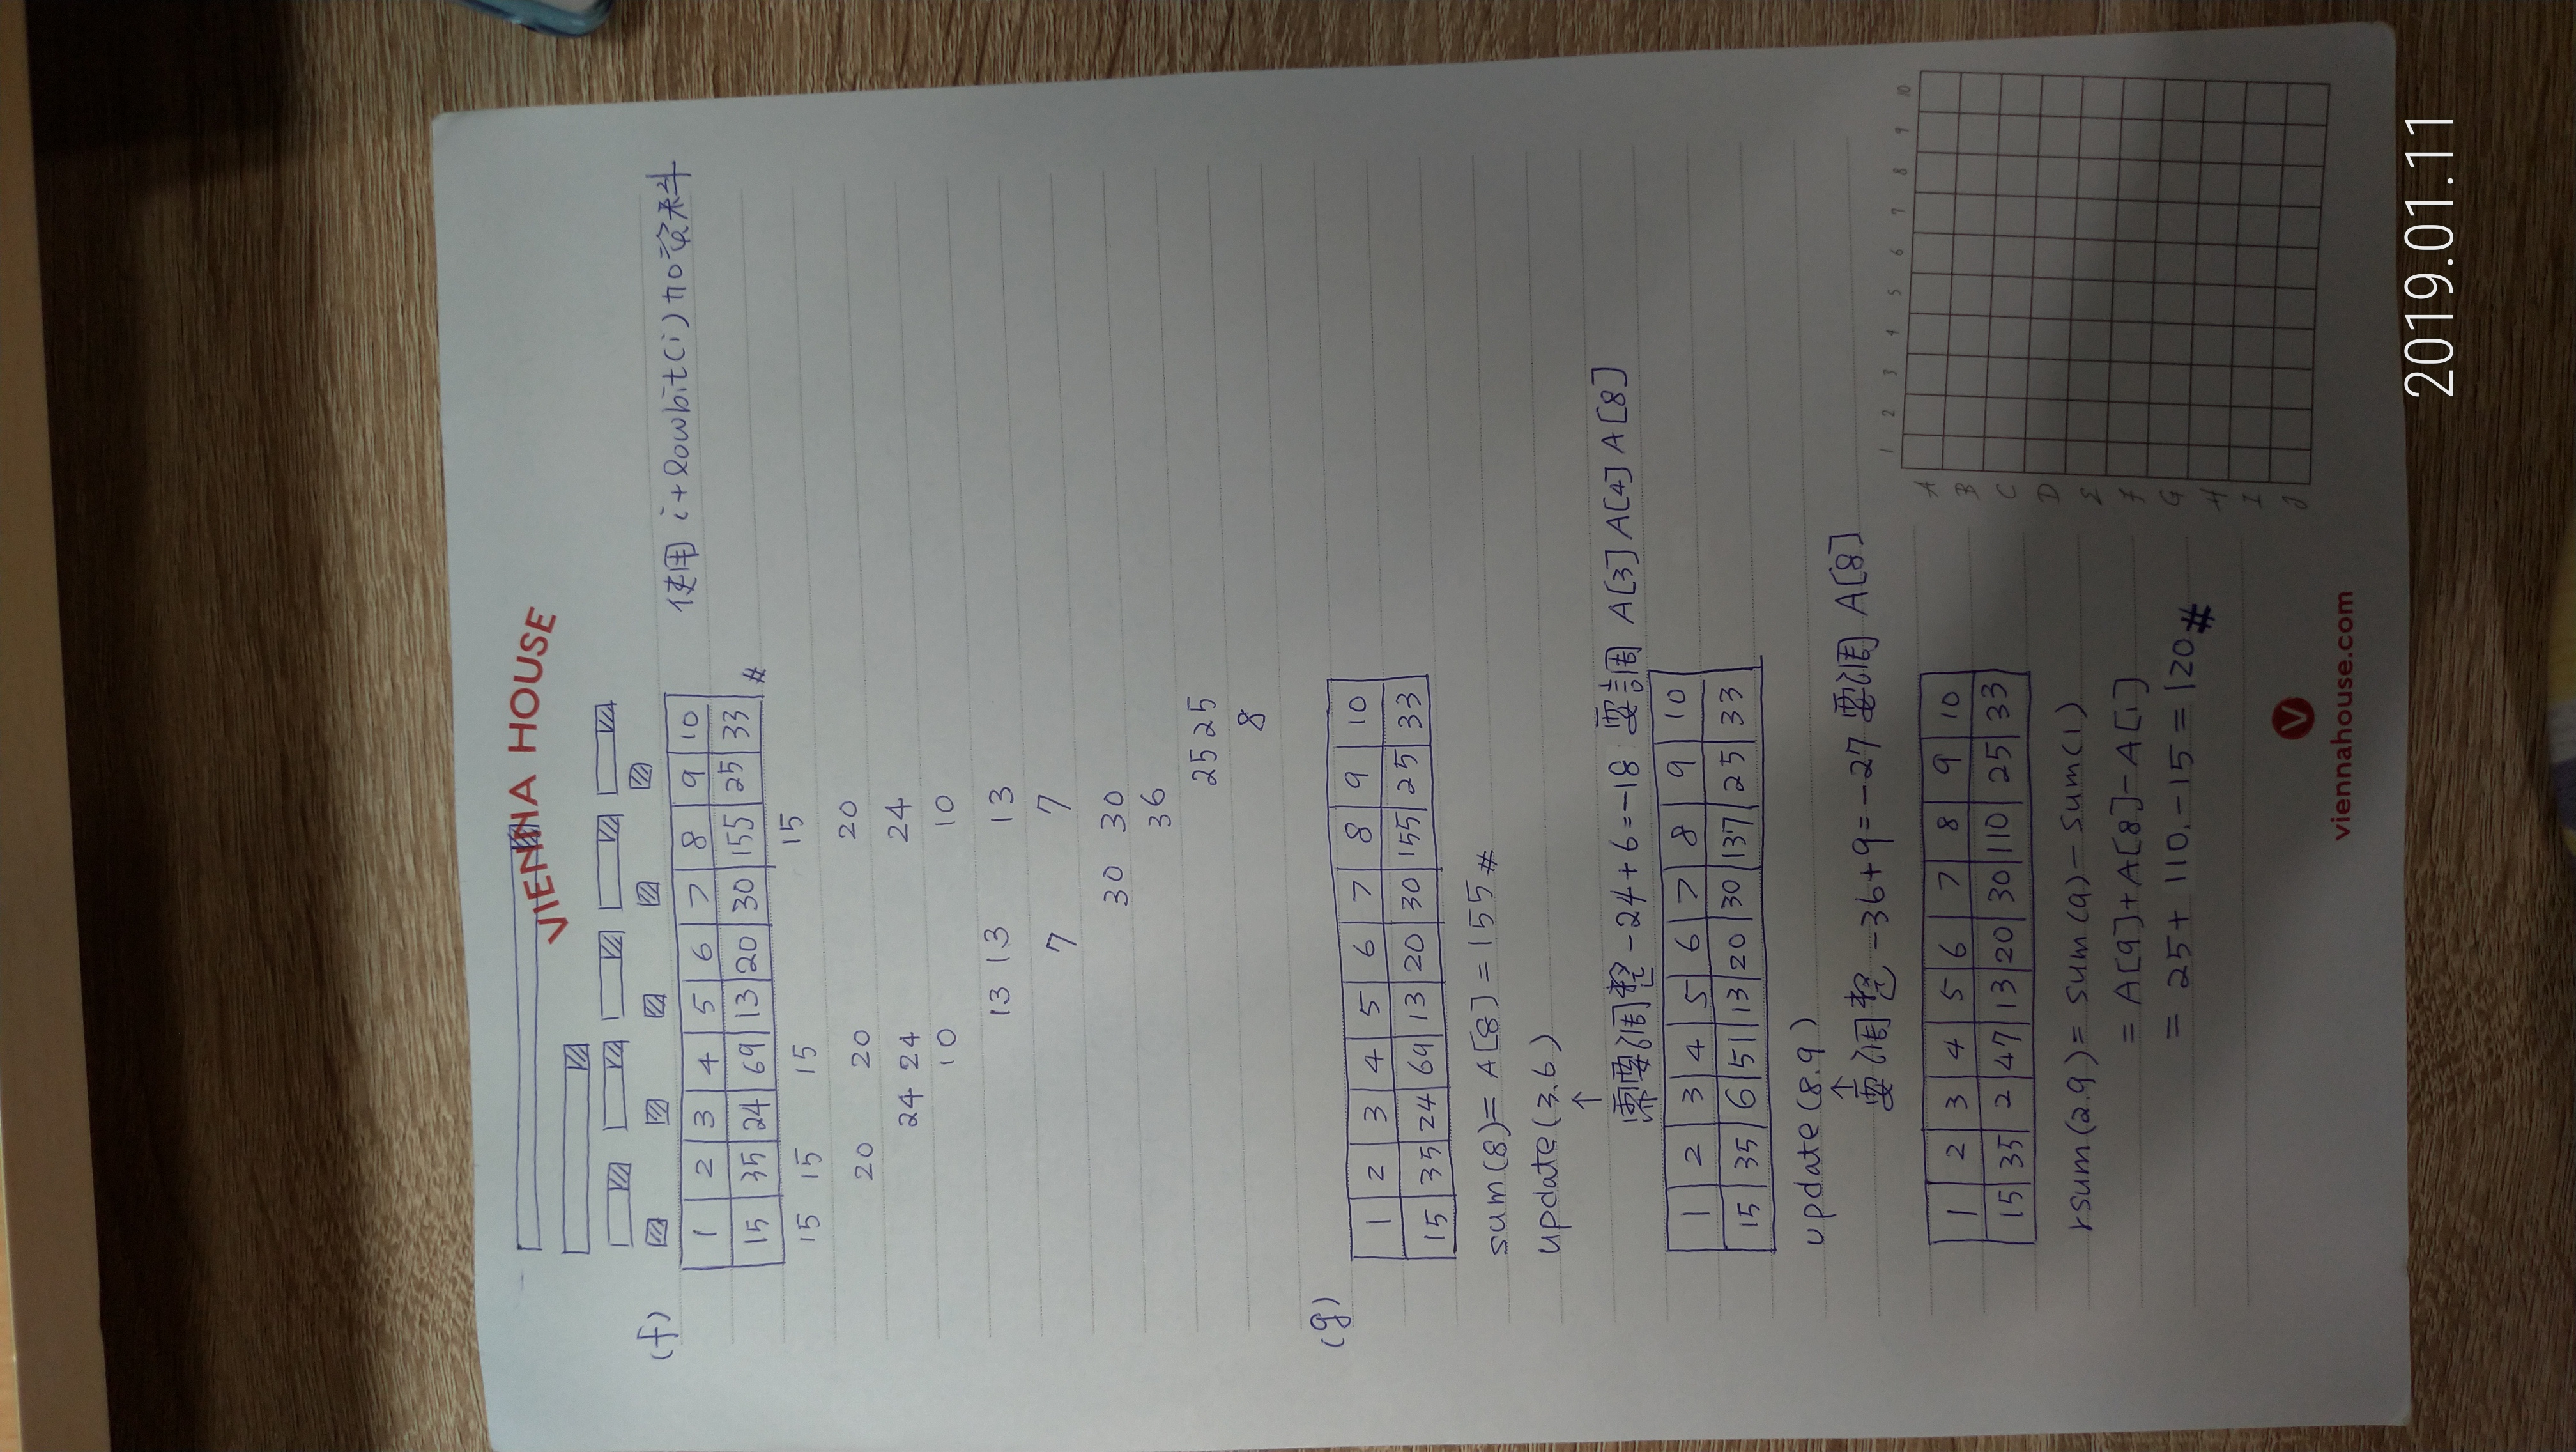 VIENNA HOUSE
(f)
使用 i+lowbit(i) 加資料
1 2 3 4 5 6 7 8 9 10
15 35 24 69 13 20 30 155 25 33 #
15 15 15 15
20 20 20
24 24 24
10 10
13 13 13
7 7
30 30
36
25 25
8
(g)
1 2 3 4 5 6 7 8 9 10
15 35 24 69 13 20 30 155 25 33
sum(8)= A[8] = 155 #
update(3.6)
↑
需要調整 -24+6=-18 要調 A[3] A[4] A[8]
1 2 3 4 5 6 7 8 9 10
15 35 6 51 13 20 30 137 25 33
update(8.9)
↑
要調整 -36+9=-27 要調 A[8]
1 2 3 4 5 6 7 8 9 10
15 35 2 47 13 20 30 110 25 33
rsum(2.9)= sum(9)-sum(1)
= A[9]+A[8]-A[1]
= 25+ 110.-15 = 120 #
1 2 3 4 5 6 7 8 9 10
A
B
C
D
E
F
G
H
I
J
V
viennahouse.com
2019.01.11